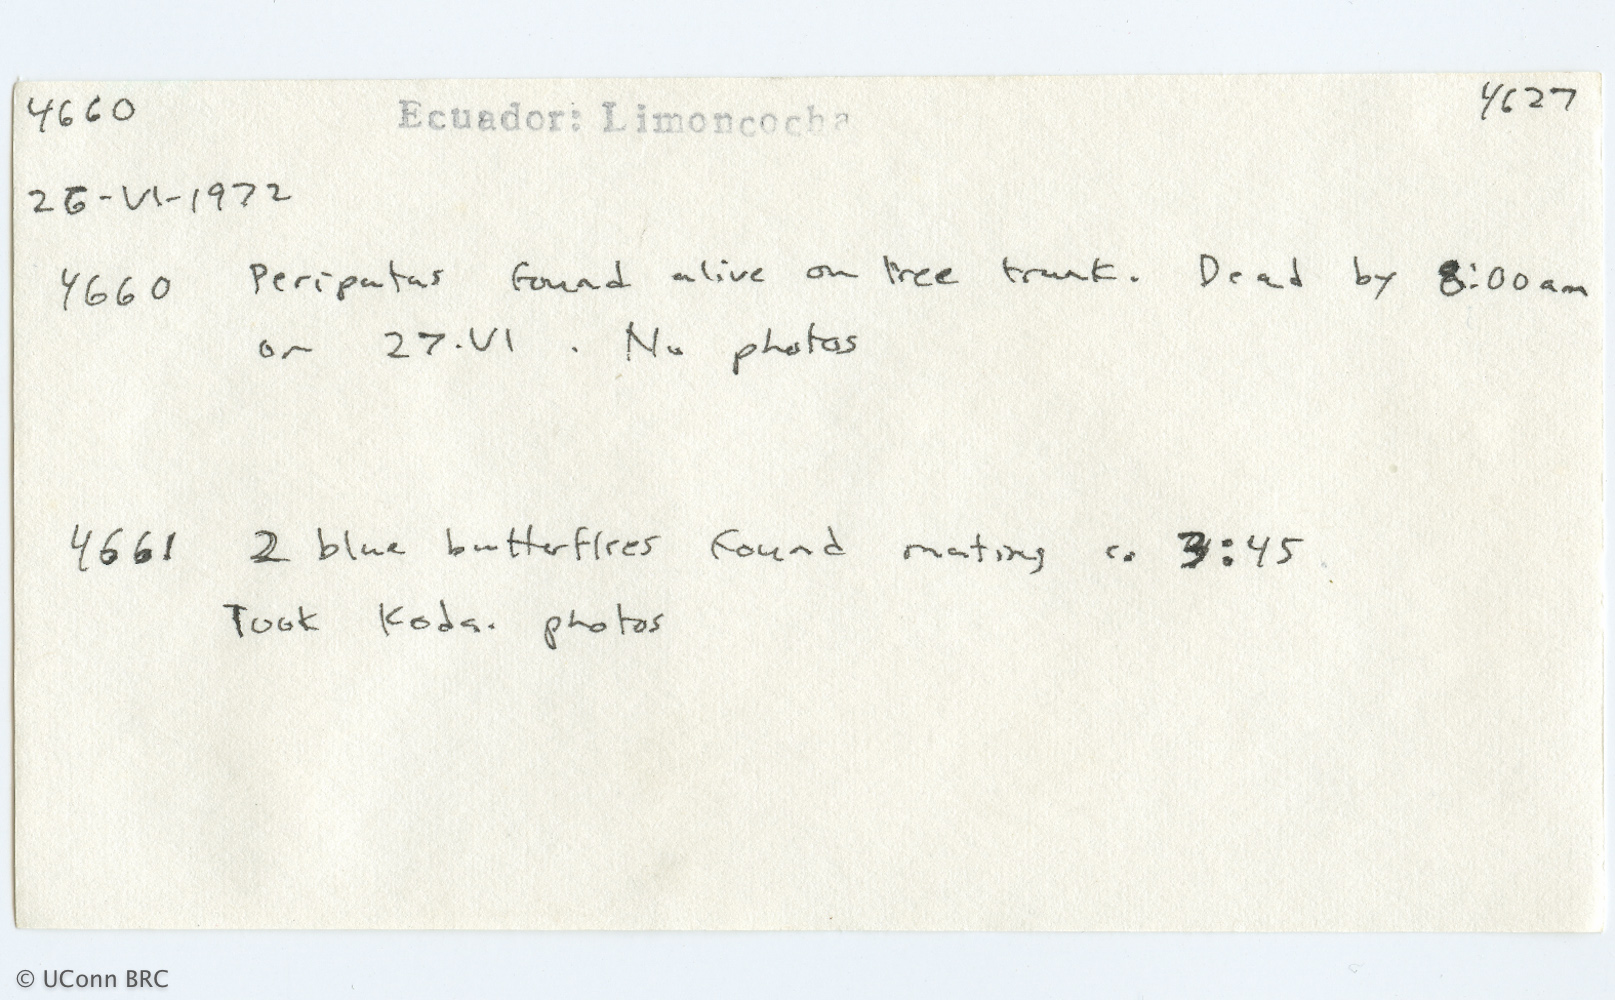 4660 Ecuador: Limoncocha 4627
26-VI-1972
4660 Peripatus found alive on tree trunk. Dead by 8:00am
on 27.VI . No photos
4661 2 blue butterflies found mating c. 3:45
Took Koda. photos
© UConn BRC